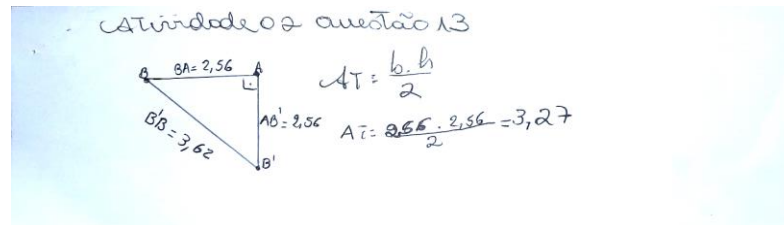 Atividade 02 questão 13
B BA = 2,56 A
AT = b.h/2
AB' = 2,56
B'B = 3,62
B'
AT = 2,56 . 2,56/2 = 3,27